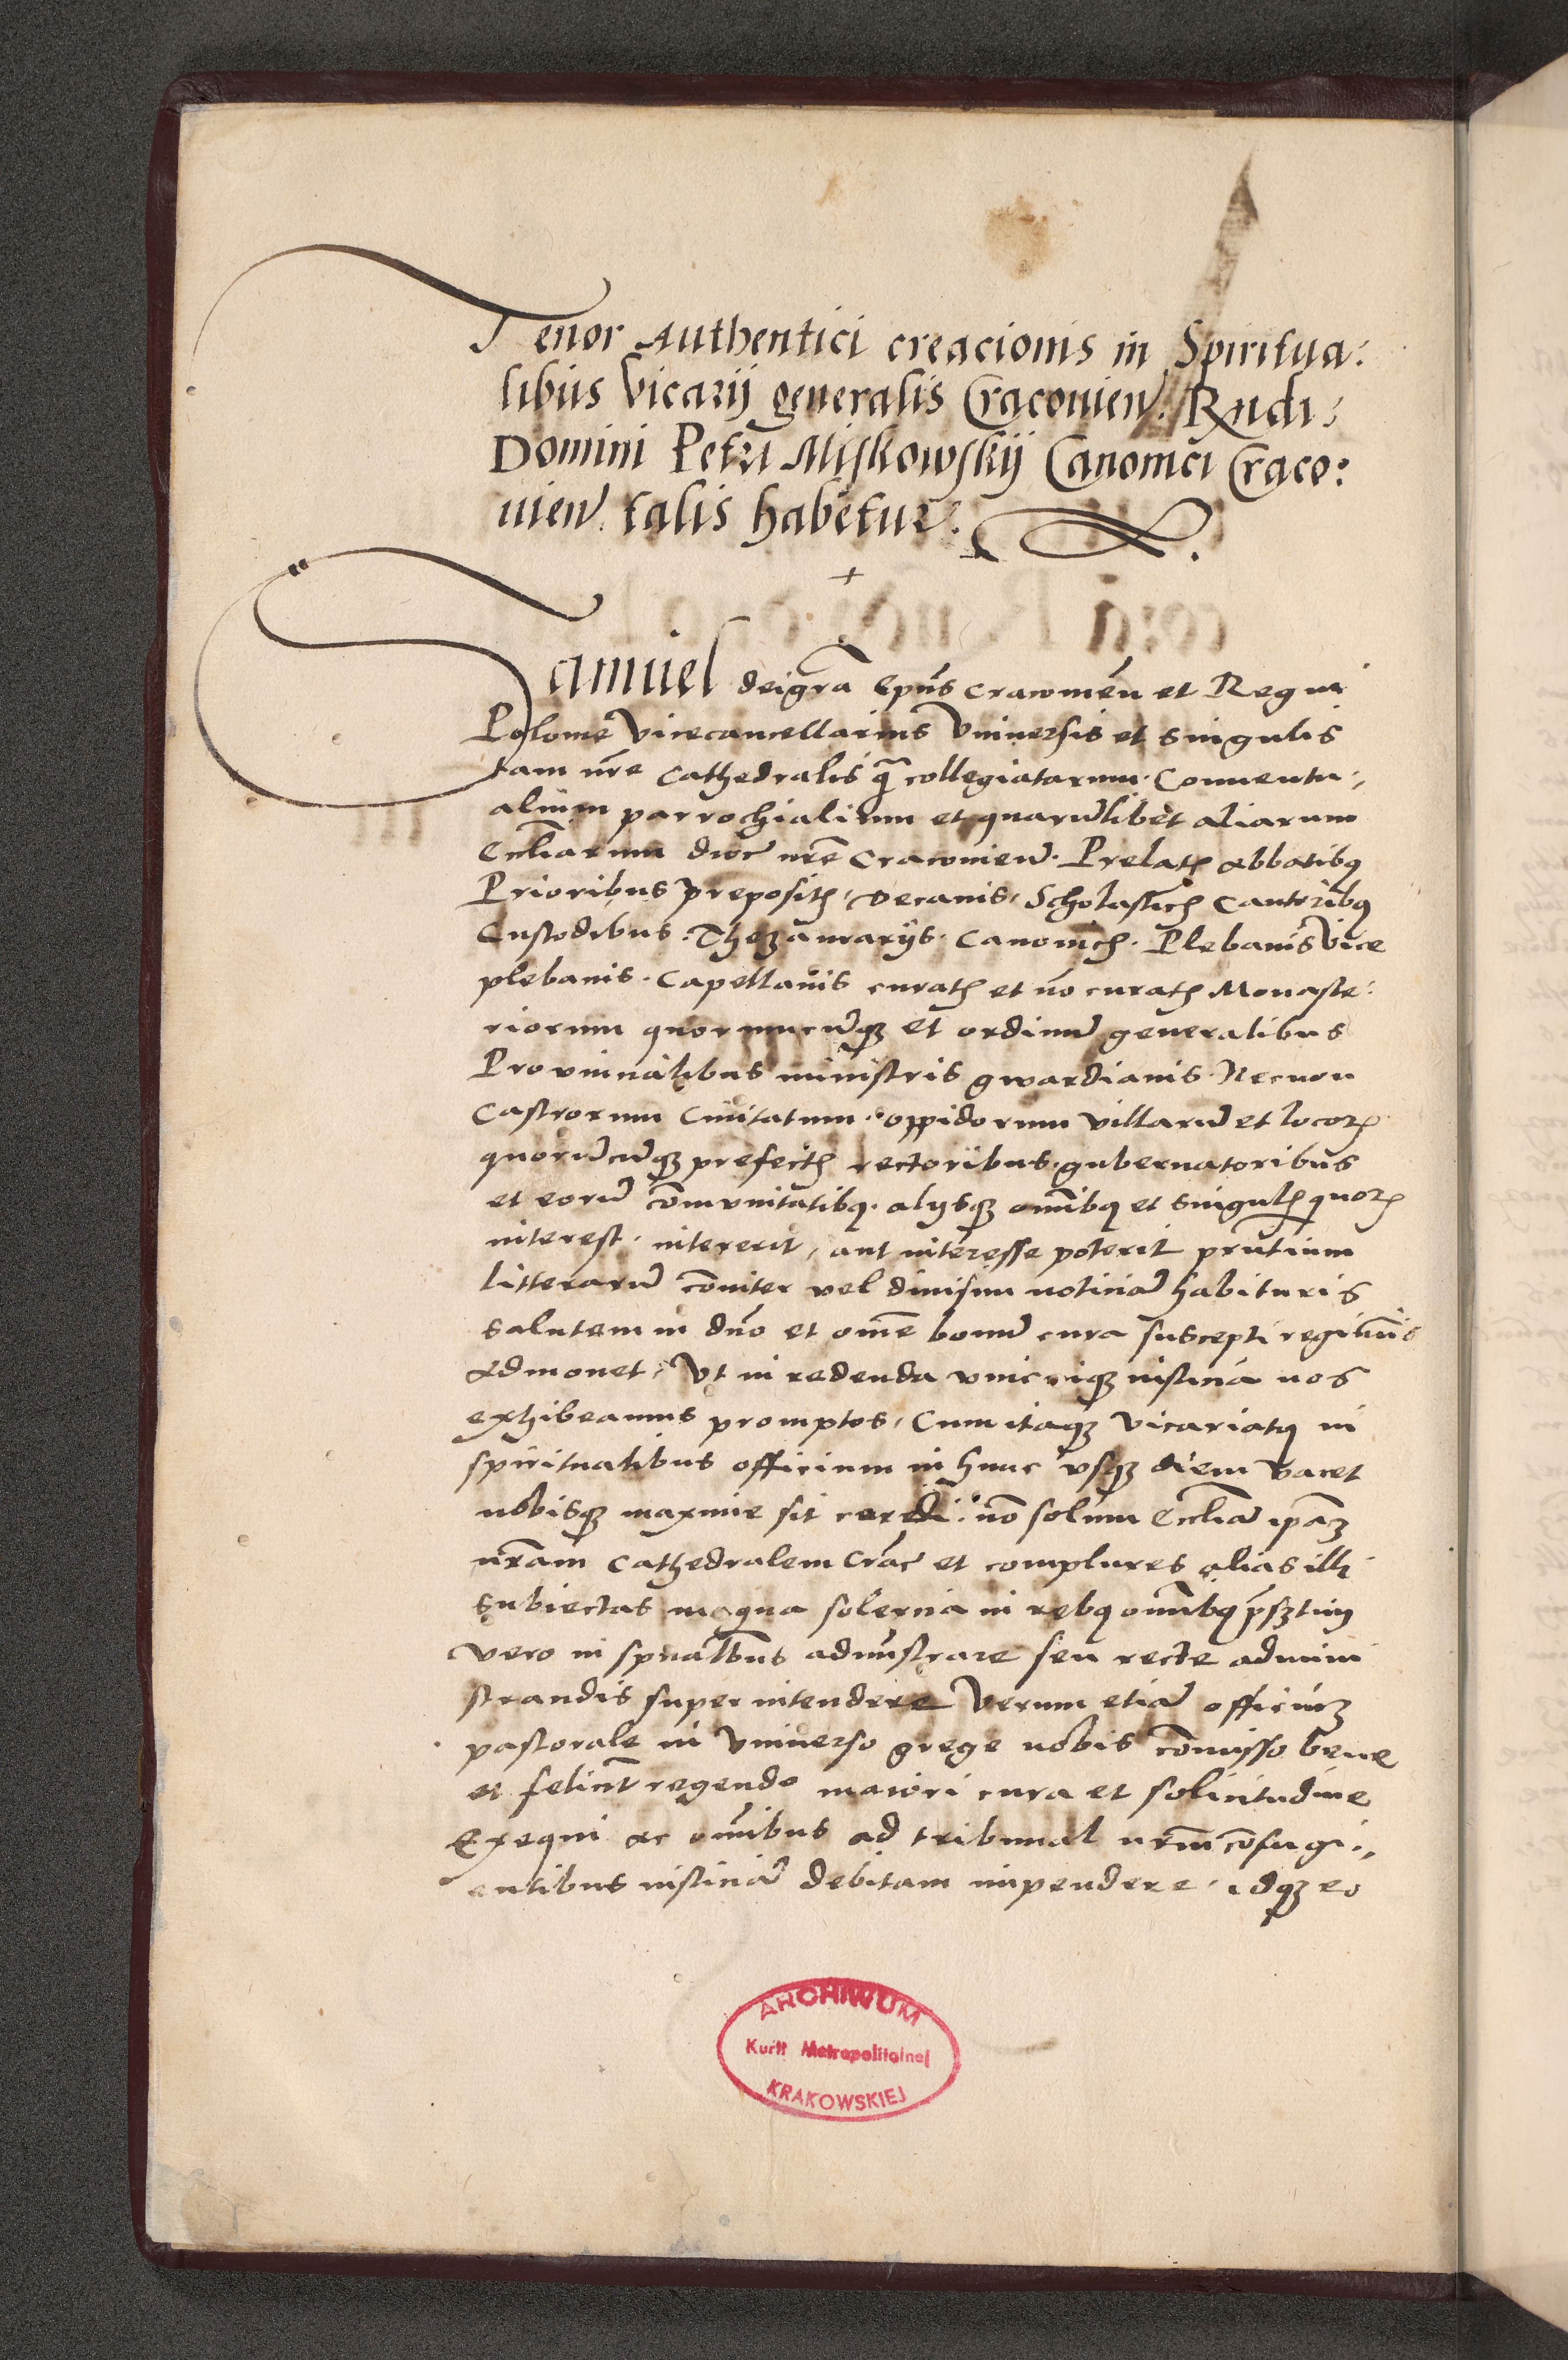 Tenor Authentici creacionis in Spiritua:
libus Vicarij generalis Cracovien̄. Rndi:
Domini Petri Miskowskij Canonici Craco:
uien̄. talis habetur.
Samuel dei gr̄a Ep̄us cracouien̄ et Regni
Polonie Vicecancellarius Vniuersis et singulis
tam nr̄e Cathedralis q̄ collegiatarum. Conuentu,
alium parrochialium et quarūlibet aliarum
Eccl̄iarum dioc̄ nr̄e Cracouien̄. Prelatꝭ Abbatibꝯ
Prioribus prepositꝭ, Decanis, Scholasticꝭ Cantoribꝯ
Custodibus. Thezaurarijs. Canonicꝭ. Plebanis Vice
plebanis. Capellanis curatꝭ et nō curatꝭ Monaste:
riorum quorumcūqꝫ et ordinū generalibus
Provincialibus ministris gwardianis. Necnon
Castrorum Ciuitatum. oppidorum villarū et locoꝝ
quorūcūqꝫ prefectꝭ rectoribus. gubernatoribus
et eorū com̄vnitatibꝯ. alysqꝫ om̄ibꝯ et singulꝭ quoꝝ
interest. intererit, aut interesse poterit pn̄tium
litterarū com̄iter vel diuisim noticiā habituris
salutem in dn̄o et om̄e bonū cura suscepti regiminis
Admonet, Vt in redenda vnicuiqꝫ iusticia nos
exhibeamus promptos, Cum itaqꝫ Vicariatꝯ in
spiritualibus officium in hunc vsqꝫ diem vacet
nobisqꝫ maxime sit cordi. nō solum Eccl̄iā ip̄aꝫ
nr̄am Cathedralem Crac̄ et complures alias illi
subiectas magna solercia in rebꝯ om̄ibꝯ p̄sꝫtim
vero in sp̄ualibus administrare seu recte admini
strandis superintendere Verum etiā officiūꝫ
pastorale in Vniuerso grege nobis com̄isso bene
et felicit̄ regendo maiori cura et solicitudine
Exequi ac om̄ibus ad tribunal nr̄m cōfugi,,
entibus iusticiā debitam impendere, idqꝫ eo
ARCHIWUM
Kurii Metropolitalnej
KRAKOWSKIEJ